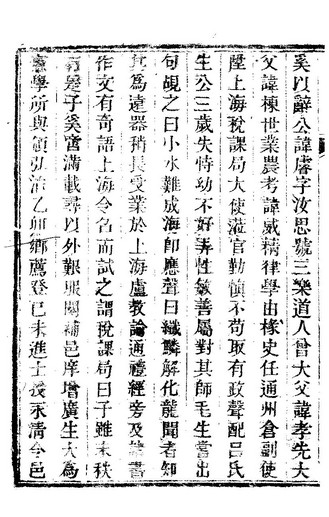 奚以辭公諱睿字汝思號三樂道人曾大父諱孝先大
父諱棟世業農考諱威精律學由椽史任通州倉副使
陞上海稅課局大使涖官勤慎不苟取有政聲配呂氏
生公三歲失恃幼不好弄性敏善屬對其師毛生嘗出
句覘之曰小水難成海即應聲曰纖鱗解化龍聞者知
其為遠器稍長受業於上海盧教諭通禮經旁及羣書
作文有奇語上海令名而試之謂稅課局曰子雖末秩
有是子奚啻滿載尋以外艱服闋補邑庠增廣生大為
學所與領弘治乙卯鄉薦登己未進士授永清令邑